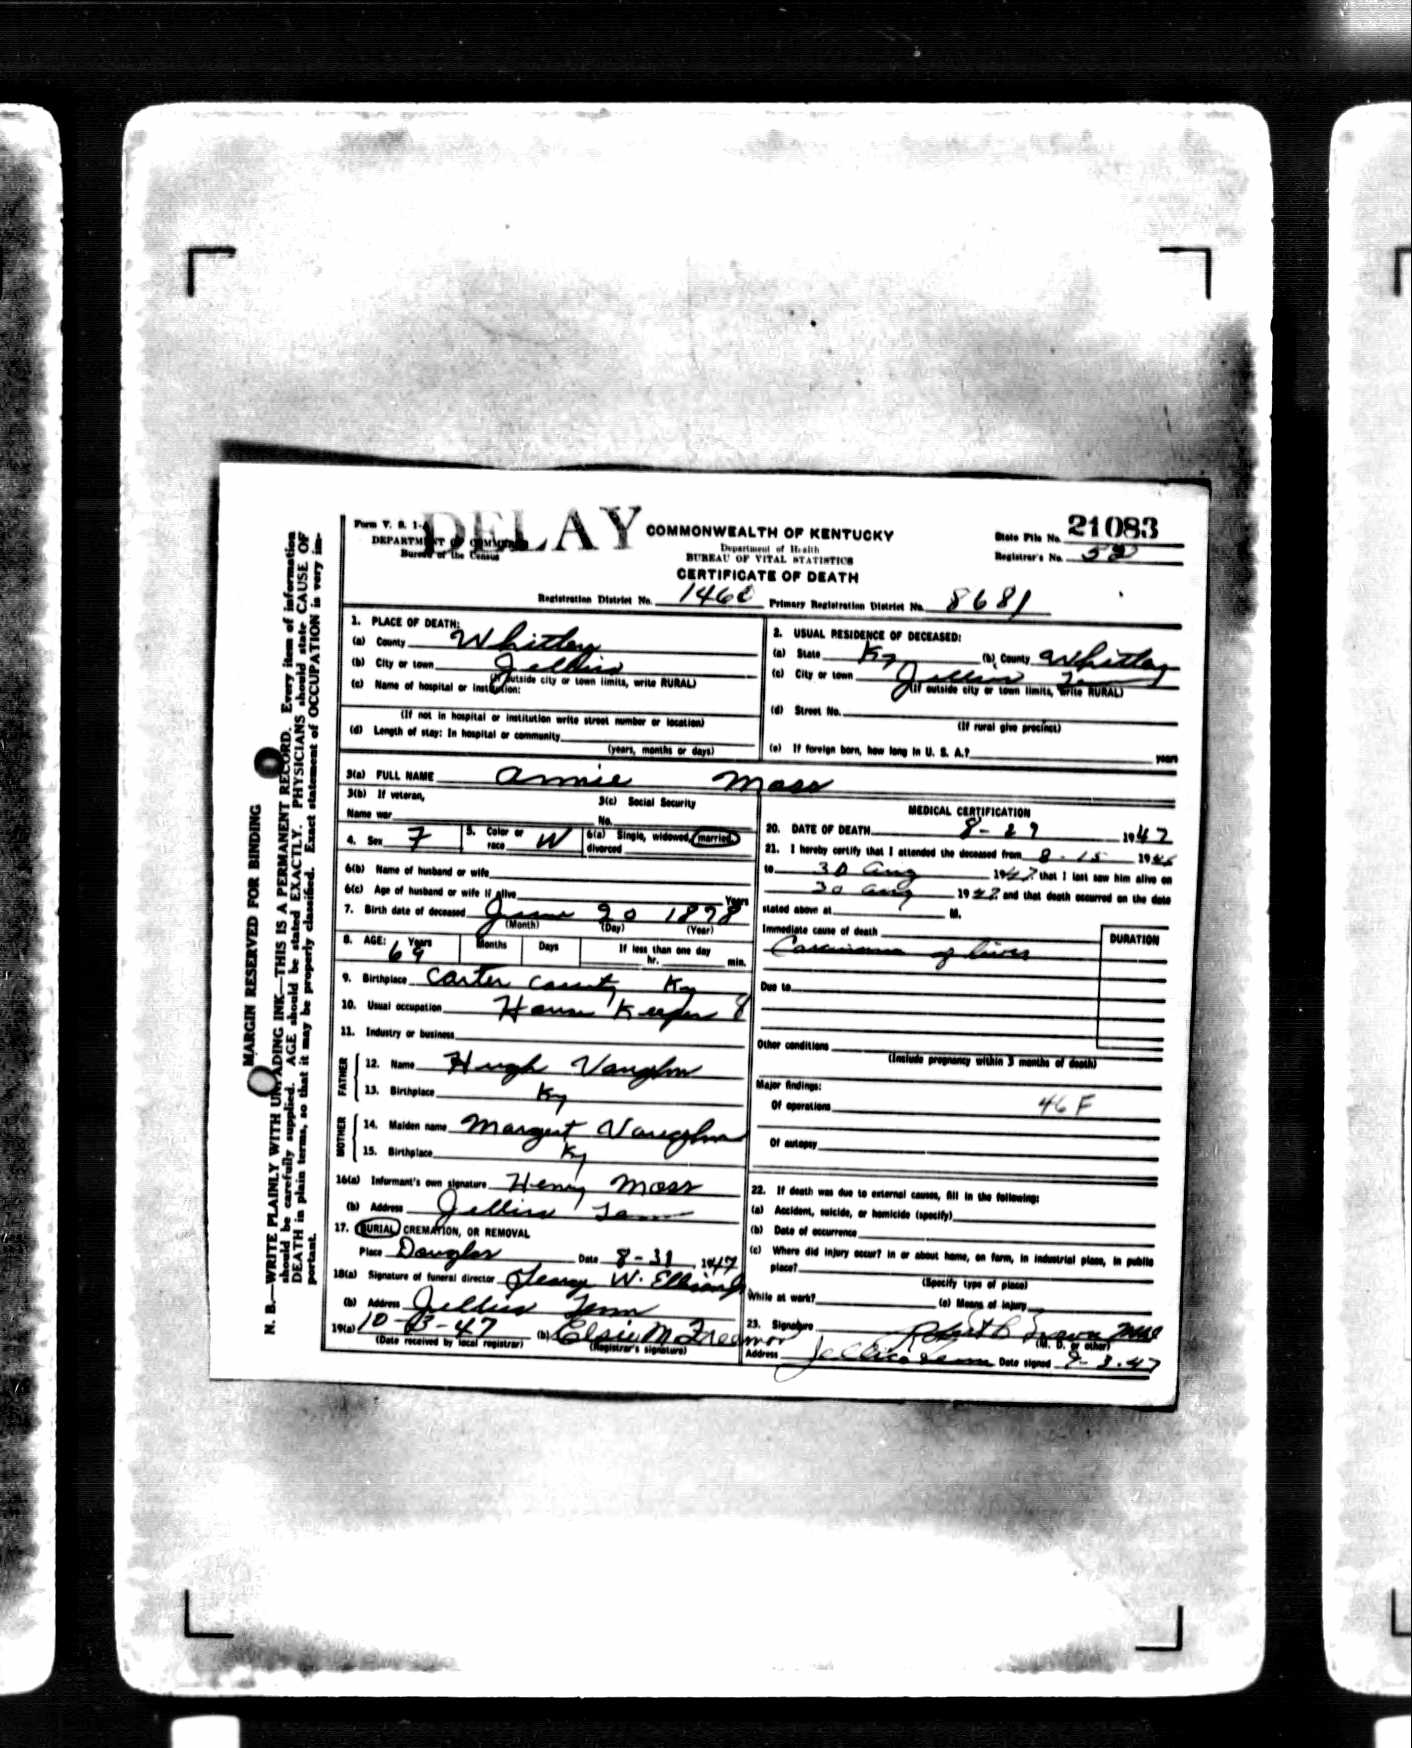 Form V. S. 1-A
DELAY
DEPARTMENT OF COMMERCE
Bureau of the Census
COMMONWEALTH OF KENTUCKY
Department of Health
BUREAU OF VITAL STATISTICS
CERTIFICATE OF DEATH
State File No. 21083
Registrar's No. 52
Registration District No. 1460 Primary Registration District No. 8681
1. PLACE OF DEATH:
(a) County Whitley
(b) City or town Jellico
(If outside city or town limits, write RURAL)
(c) Name of hospital or institution:
(If not in hospital or institution write street number or location)
(d) Length of stay: In hospital or community
(years, months or days)
2. USUAL RESIDENCE OF DECEASED:
(a) State Ky (b) County Whitley
(c) City or town Jellico Tenn
(If outside city or town limits, write RURAL)
(d) Street No.
(If rural give precinct)
(e) If foreign born, how long in U. S. A.? years
3(a) FULL NAME Annie Moss
3(b) If veteran,
Name war
3(c) Social Security
No.
4. Sex F 5. Color or race W 6(a) Single, widowed, married, divorced
6(b) Name of husband or wife
6(c) Age of husband or wife if alive Years
7. Birth date of deceased June 20 1878
(Month) (Day) (Year)
8. AGE: Years Months Days If less than one day
69 hr. min.
9. Birthplace Carter County Ky
10. Usual occupation House Keeper 8
11. Industry or business
FATHER
12. Name Hugh Vaughn
13. Birthplace Ky
MOTHER
14. Maiden name Margret Vaughn
15. Birthplace Ky
16(a) Informant's own signature Henry Moss
(b) Address Jellico Tenn
17. BURIAL, CREMATION, OR REMOVAL
Place Douglas Date 8-31, 1947
18(a) Signature of funeral director W.
(b) Address Jellico Tenn
19(a) 10-13-47 (b) Elsie M. Freeman
(Date received by local registrar) (Registrar's signature)
MEDICAL CERTIFICATION
20. DATE OF DEATH 8-29 1947
21. I hereby certify that I attended the deceased from 8-15 1946
to 30 Aug 1947, that I last saw him alive on
30 Aug 1947 and that death occurred on the date
stated above at M.
Immediate cause of death DURATION
Carcinoma of liver
Due to
Other conditions
(Include pregnancy within 3 months of death)
Major findings:
Of operations 46F
Of autopsy
22. If death was due to external causes, fill in the following:
(a) Accident, suicide, or homicide (specify)
(b) Date of occurrence
(c) Where did injury occur? In or about home, on farm, in industrial place, in public
place?
(Specify type of place)
While at work? (e) Means of injury
23. Signature Robert
(M. D. or other)
Address Jellico Tenn Date signed 9-3-47
MARGIN RESERVED FOR BINDING
N. B.—WRITE PLAINLY WITH UNFADING INK—THIS IS A PERMANENT RECORD. Every item of information
should be carefully supplied. AGE should be stated EXACTLY. PHYSICIANS should state CAUSE OF
DEATH in plain terms, so that it may be properly classified. Exact statement of OCCUPATION is very im-
portant.